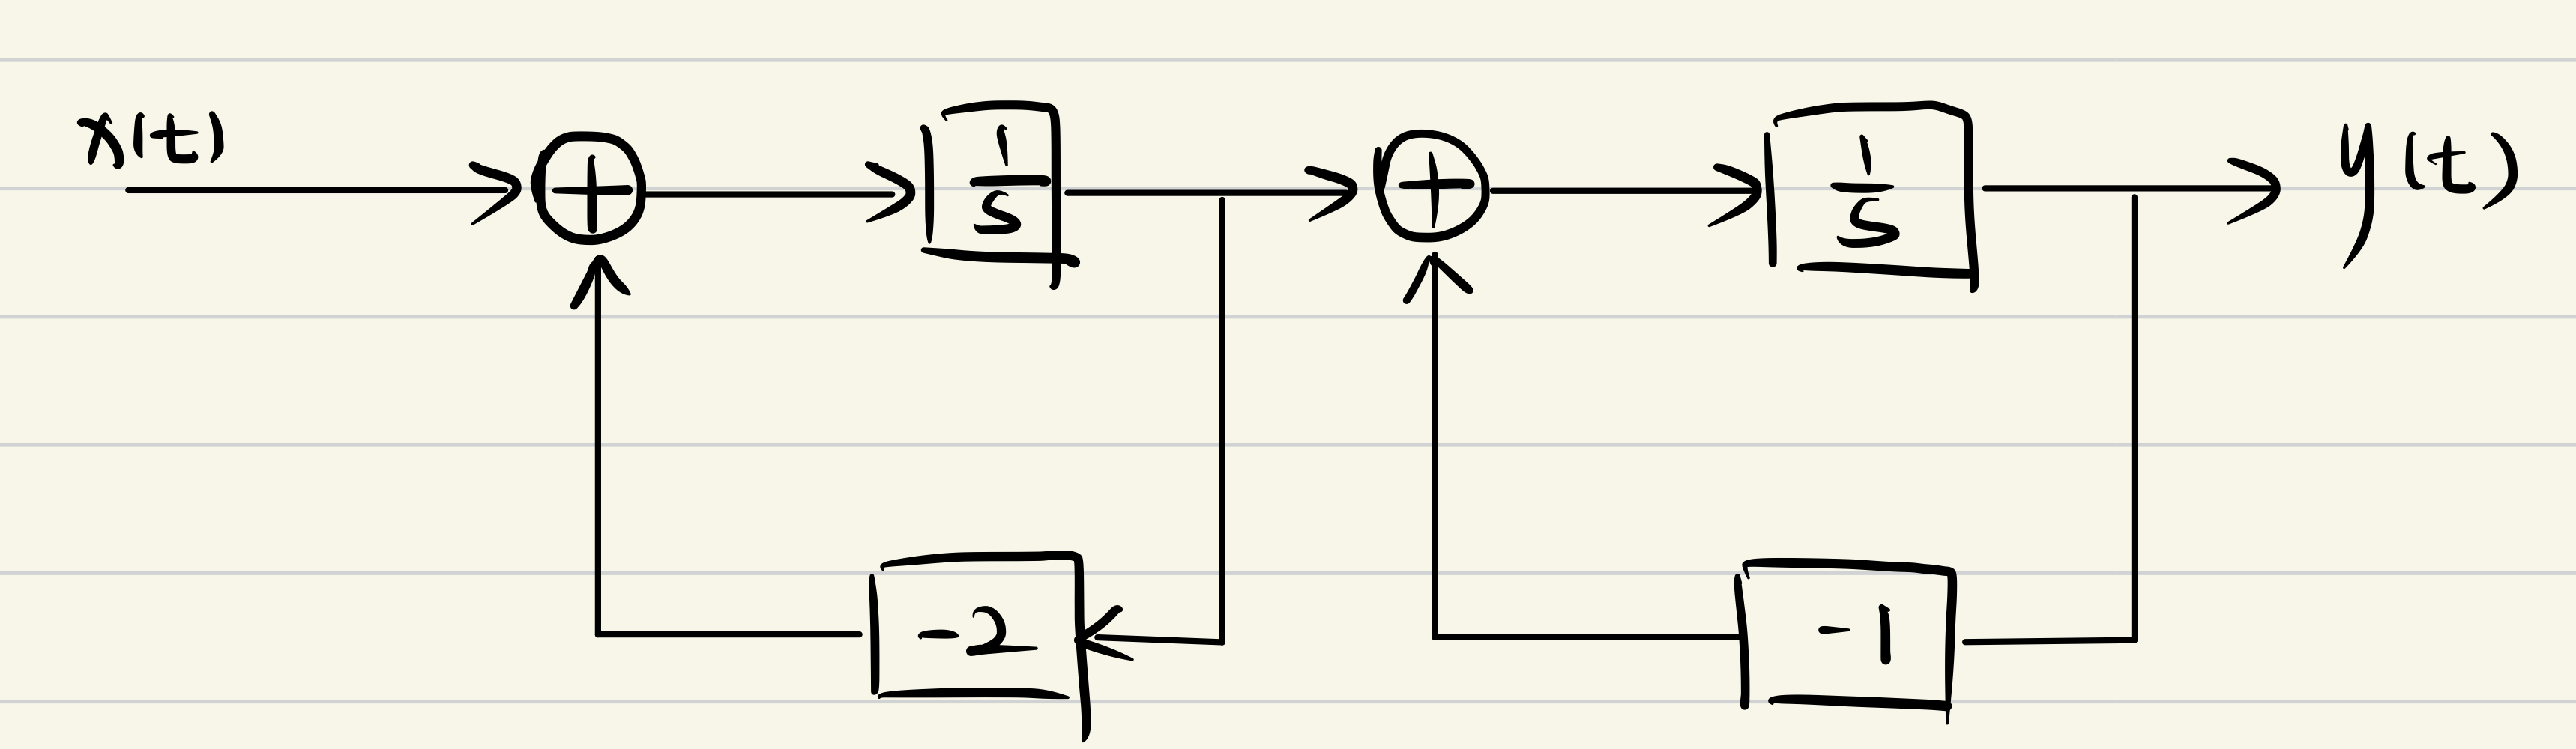 x(t)
+
1/s
+
1/s
y(t)
-2
-1